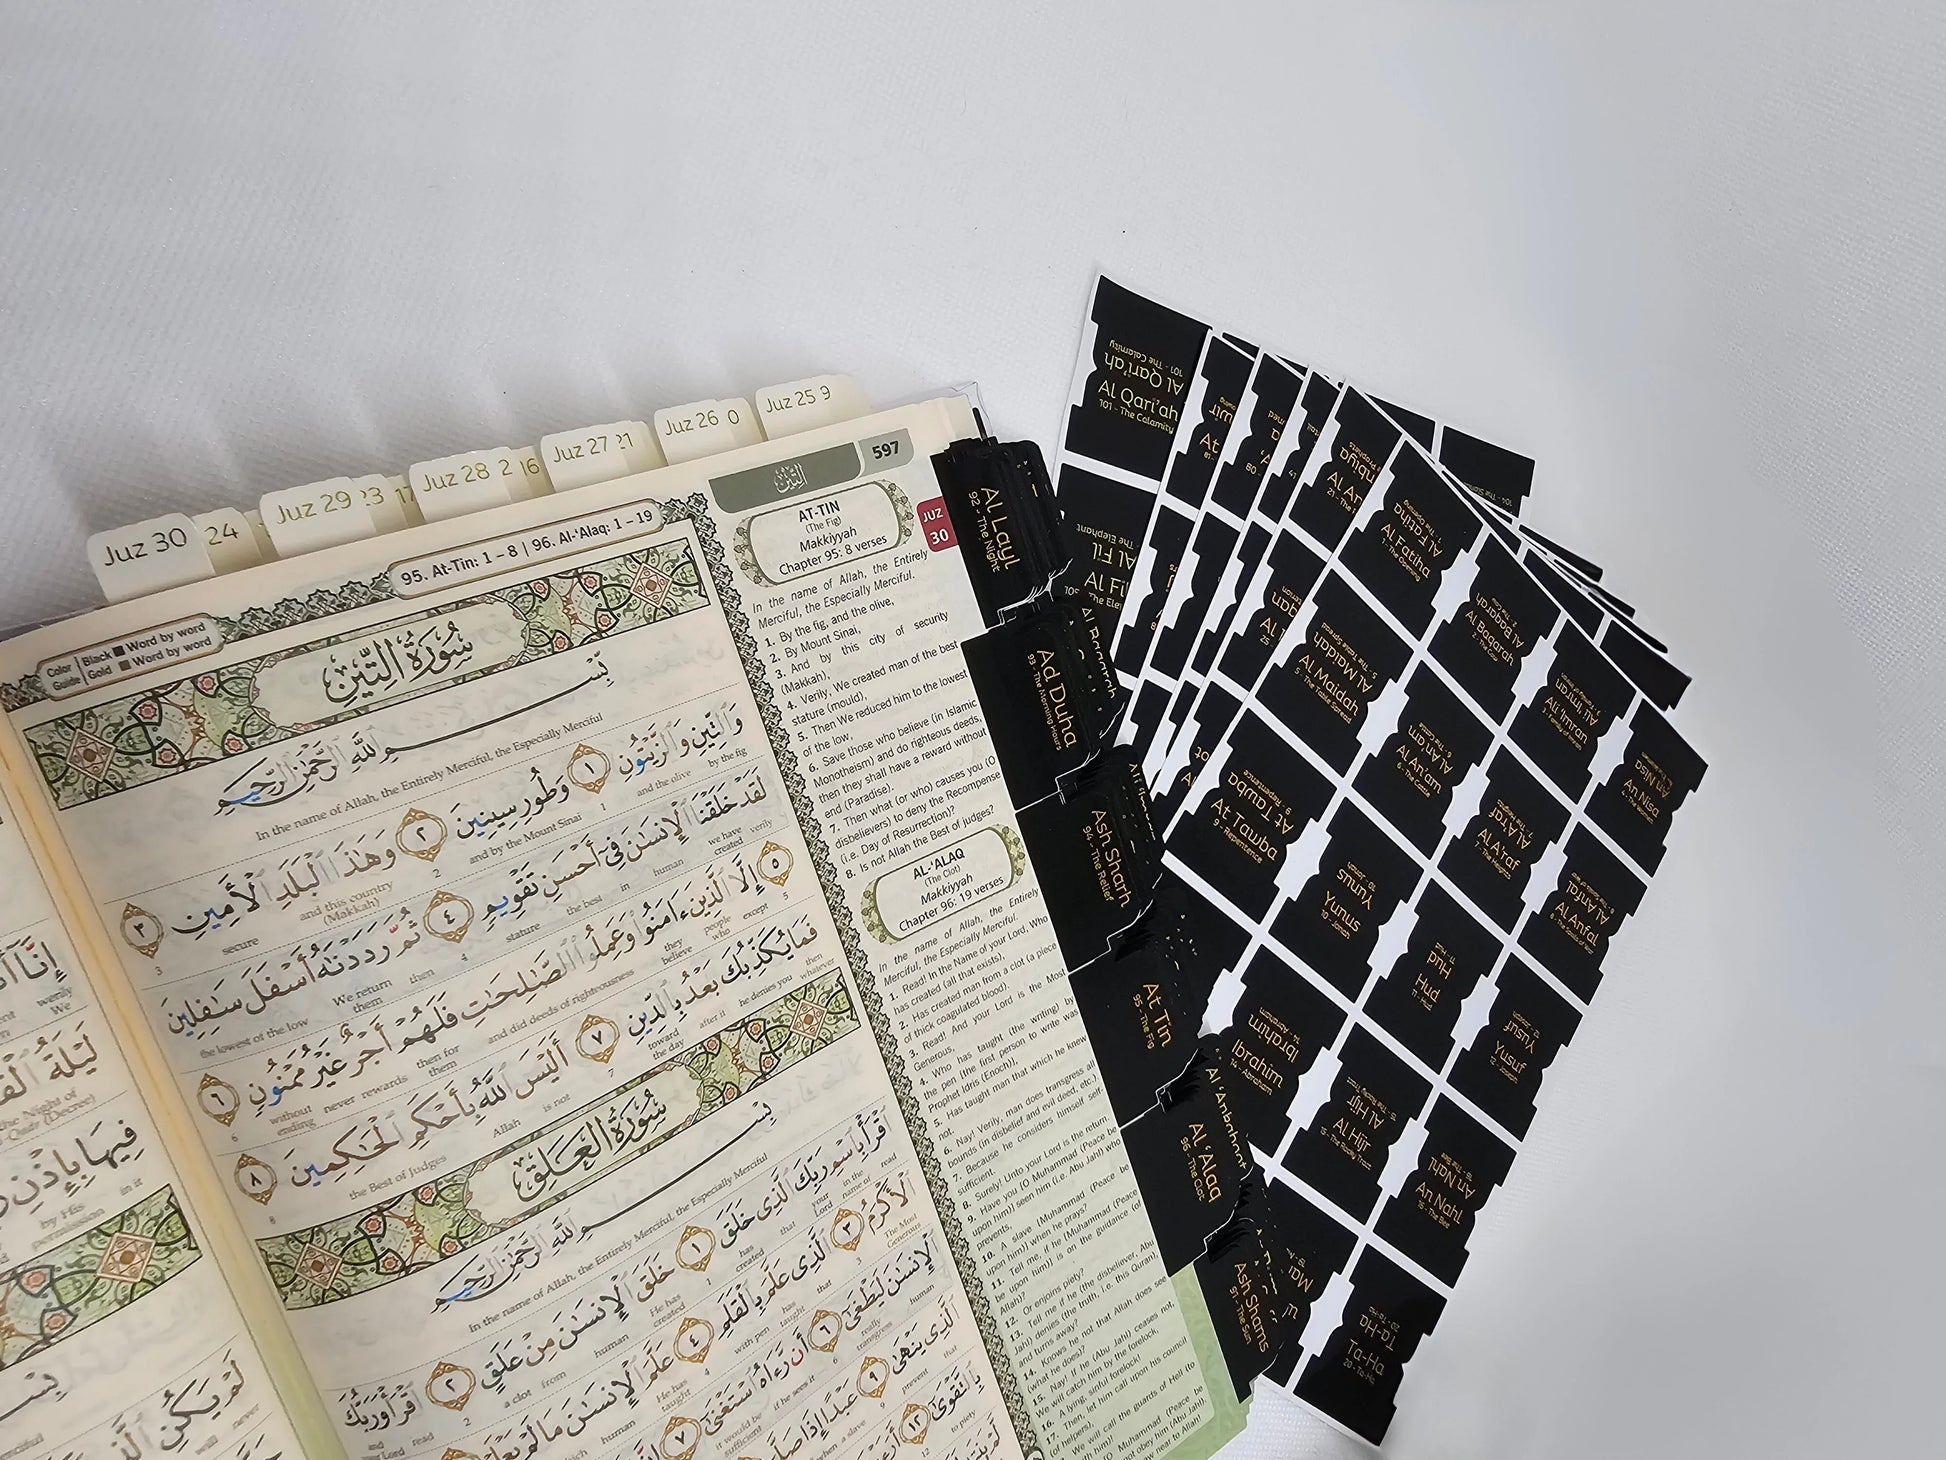 Juz 30
24
Juz 29
23
17
Juz 28
2
16
Juz 27
21
Juz 26
0
Juz 25
9
Color Guide
Black ■ Word by word
Gold ■ Word by word
95. At-Tin: 1 – 8 | 96. Al-'Alaq: 1 – 19
التين
597
JUZ
30
سُورَةُ التِّينِ
بِسْمِ اللَّهِ الرَّحْمَٰنِ الرَّحِيمِ
In the name of Allah, the Entirely Merciful, the Especially Merciful
وَٱلتِّينِ وَٱلزَّيْتُونِ ١ وَطُورِ سِينِينَ ٢ وَهَٰذَا ٱلْبَلَدِ ٱلْأَمِينِ ٣
by the fig and the olive 1 and by the Mount Sinai 2 and this country (Makkah) secure 3
لَقَدْ خَلَقْنَا ٱلْإِنسَٰنَ فِىٓ أَحْسَنِ تَقْوِيمٍ ٤ ثُمَّ رَدَدْنَٰهُ أَسْفَلَ سَٰفِلِينَ ٥
verily we have created human in the best stature 4 then We return them the lowest of the low 5
إِلَّا ٱلَّذِينَ ءَامَنُوا۟ وَعَمِلُوا۟ ٱلصَّٰلِحَٰتِ فَلَهُمْ أَجْرٌ غَيْرُ مَمْنُونٍ ٦
except people who they believe and did deeds of righteousness then for them rewards never without ending 6
فَمَا يُكَذِّبُكَ بَعْدُ بِٱلدِّينِ ٧ أَلَيْسَ ٱللَّهُ بِأَحْكَمِ ٱلْحَٰكِمِينَ ٨
then whatever he denies you after it toward the day 7 is not Allah the Best of Judges 8
سُورَةُ العَلَقِ
بِسْمِ اللَّهِ الرَّحْمَٰنِ الرَّحِيمِ
In the name of Allah, the Entirely Merciful, the Especially Merciful
ٱقْرَأْ بِٱسْمِ رَبِّكَ ٱلَّذِى خَلَقَ ١ خَلَقَ ٱلْإِنسَٰنَ مِنْ عَلَقٍ ٢ ٱقْرَأْ وَرَبُّكَ
read in the name of your Lord that has created 1 He has created human from a clot 2 read and Lord
ٱلْأَكْرَمُ ٣ ٱلَّذِى عَلَّمَ بِٱلْقَلَمِ ٤ عَلَّمَ ٱلْإِنسَٰنَ مَا لَمْ يَعْلَمْ
The Most Generous 3 that has taught with pen 4 He has taught human which
AT-TIN
(The Fig)
Makkiyyah
Chapter 95: 8 verses
In the name of Allah, the Entirely
Merciful, the Especially Merciful.
1. By the fig, and the olive,
2. By Mount Sinai,
3. And by this city of security
(Makkah),
4. Verily, We created man of the best
stature (mould),
5. Then We reduced him to the lowest
of the low,
6. Save those who believe (in Islamic
Monotheism) and do righteous deeds,
then they shall have a reward without
end (Paradise).
7. Then what (or who) causes you (O
disbelievers) to deny the Recompense
(i.e. Day of Resurrection)?
8. Is not Allah the Best of judges?
AL-'ALAQ
(The Clot)
Makkiyyah
Chapter 96: 19 verses
In the name of Allah, the Entirely
Merciful, the Especially Merciful.
1. Read! In the Name of your Lord, Who
has created (all that exists),
2. Has created man from a clot (a piece
of thick coagulated blood).
3. Read! And your Lord is the Most
Generous,
4. Who has taught (the writing) by
the pen [the first person to write was
Prophet Idris (Enoch)],
5. Has taught man that which he knew
not.
6. Nay! Verily, man does transgress all
bounds (in disbelief and evil deed, etc.)
7. Because he considers himself self-
sufficient.
8. Surely! Unto your Lord is the return.
9. Have you (O Muhammad (Peace be
upon him)) seen him (i.e. Abu Jahl) who
prevents,
10. A slave (Muhammad (Peace be
upon him)) when he prays?
11. Tell me, if he (Muhammad (Peace
be upon him)) is on the guidance (of
Allah)?
12. Or enjoins piety?
13. Tell me if he (the disbeliever, Abu
Jahl) denies (the truth, i.e. this Quran),
and turns away?
14. Knows he not that Allah does see
(what he does)?
15. Nay! If he (Abu Jahl) ceases not,
We will catch him by the forelock,
16. A lying, sinful forelock!
17. Then, let him call upon his council
(of helpers),
We will call the guards of Hell (to
Al Layl
92 - The Night
Ad Duha
93 - The Morning Hours
Ash Sharh
94 - The Relief
At Tin
95 - The Fig
Al 'Alaq
96 - The Clot
Ash Shams
91 - The Sun
Al Qari'ah
101 - The Calamity
Al Qari'ah
101 - The Calamity
Al Fil
The Elephant
Al Fatiha
1 - The Opening
Al Fatiha
1 - The Opening
Al Baqarah
2 - The Cow
Al Baqarah
2 - The Cow
Ali 'Imran
Ali 'Imran
3 - Family of Imran
An Nisa
An Nisa
Al Maidah
5 - The Table Spread
Al Maidah
5 - The Table Spread
Al An'am
6 - The Cattle
Al An'am
6 - The Cattle
Al A'raf
Al A'raf
7 - The Heights
Al Anfal
Al Anfal
At Tawba
9 - Repentence
At Tawba
9 - Repentence
Yunus
10 - Jonah
Yunus
10 - Jonah
Hud
11 - Hud
Hud
11 - Hud
Yusuf
12 - Joseph
Yusuf
12 - Joseph
Ibrahim
14 - Abraham
Ibrahim
14 - Abraham
Al Hijr
15 - The Rocky Tract
Al Hijr
15 - The Rocky Tract
An Nahl
16 - The Bee
An Nahl
16 - The Bee
Ta-Ha
20 - Ta-Ha
Ta-Ha
20 - Ta-Ha